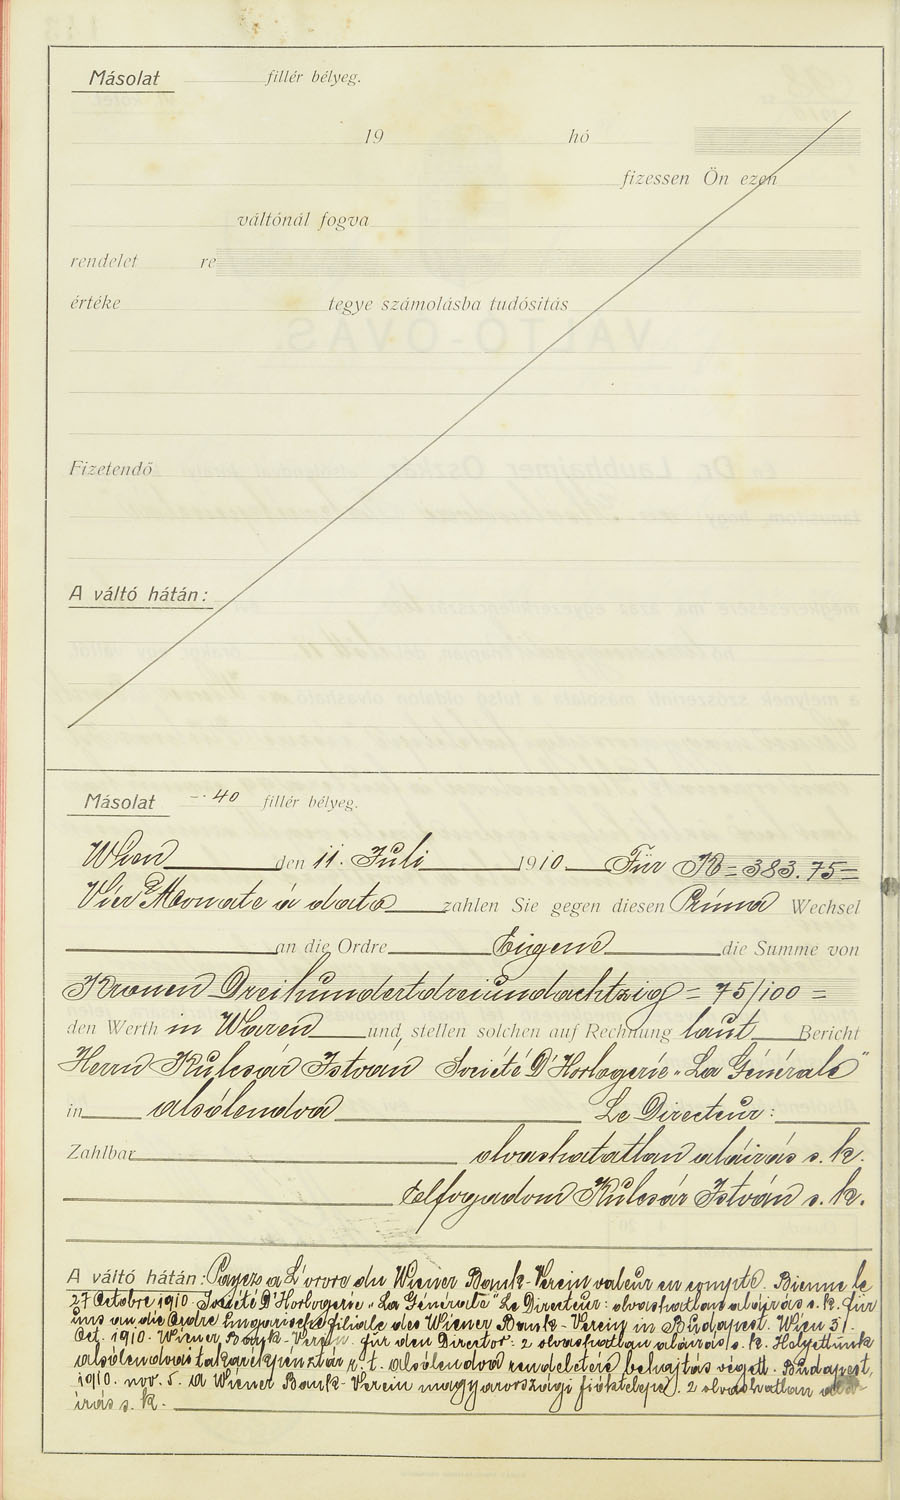 Másolat fillér bélyeg.
19 hó
fizessen Ön ezen
váltónál fogva
rendelet re
értéke tegye számolásba tudósítás
Fizetendő
A váltó hátán:
Másolat -·40 fillér bélyeg.
Wien den 11. Juli 1910 Für K = 383.75 =
Vier Monate á dato zahlen Sie gegen diesen Prima Wechsel
an die Ordre Eigene die Summe von
Kronen Dreihundertdreiundachtzig = 75/100 =
den Werth in Waren und stellen solchen auf Rechnung laut Bericht
Herrn Kulcsár István Société D'Horlogerie „La Générale"
in alsólendva Le Directeur:
Zahlbar olvashatatlan aláirás s. k.
Elfogadom Kulcsár István s. k.
A váltó hátán: Payez a L'ordre du Wiener Bank-Verein valeur en compte. Bienne le
27 Octobre 1910. Société D'Horlogerie „La Générale" Le Directeur: olvashatlan aláirás s. k. Für
uns an die Ordre Ungarische Filiale des Wiener Bank-Verein in Budapest. Wien 31.
Oct. 1910. Wiener Bank-Verein. Für den Director: 2 olvashatlan aláirás s. k. Helyettünk
alsólendvai takarékpénztár r. t. alsólendva rendeletére behajtás végett. Budapest,
1910. nov. 5. a Wiener Bank-Verein magyarországi fióktelepe. 2 olvashatlan alá-
irás s. k.